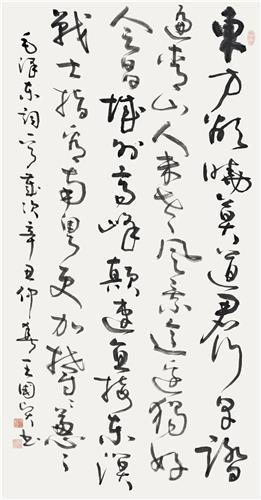 東方欲曉莫道君行早踏
遍青山人未老風景這邊獨好
會昌城外高峰顛連直接东溟
戰士指看南粤更加郁々葱々
毛泽东词一首歲次辛丑仲春王國书